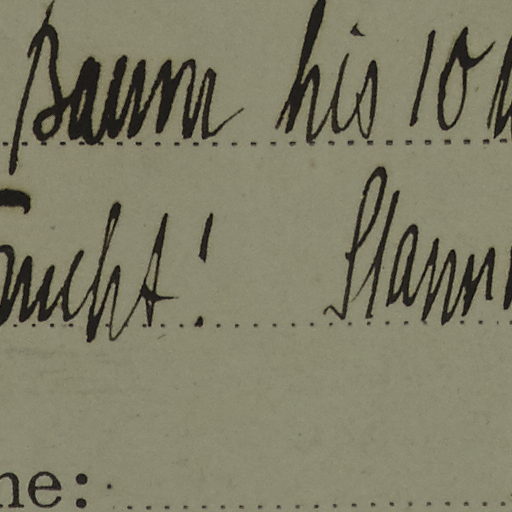 Baum his 10
ucht! Stamm
ne: